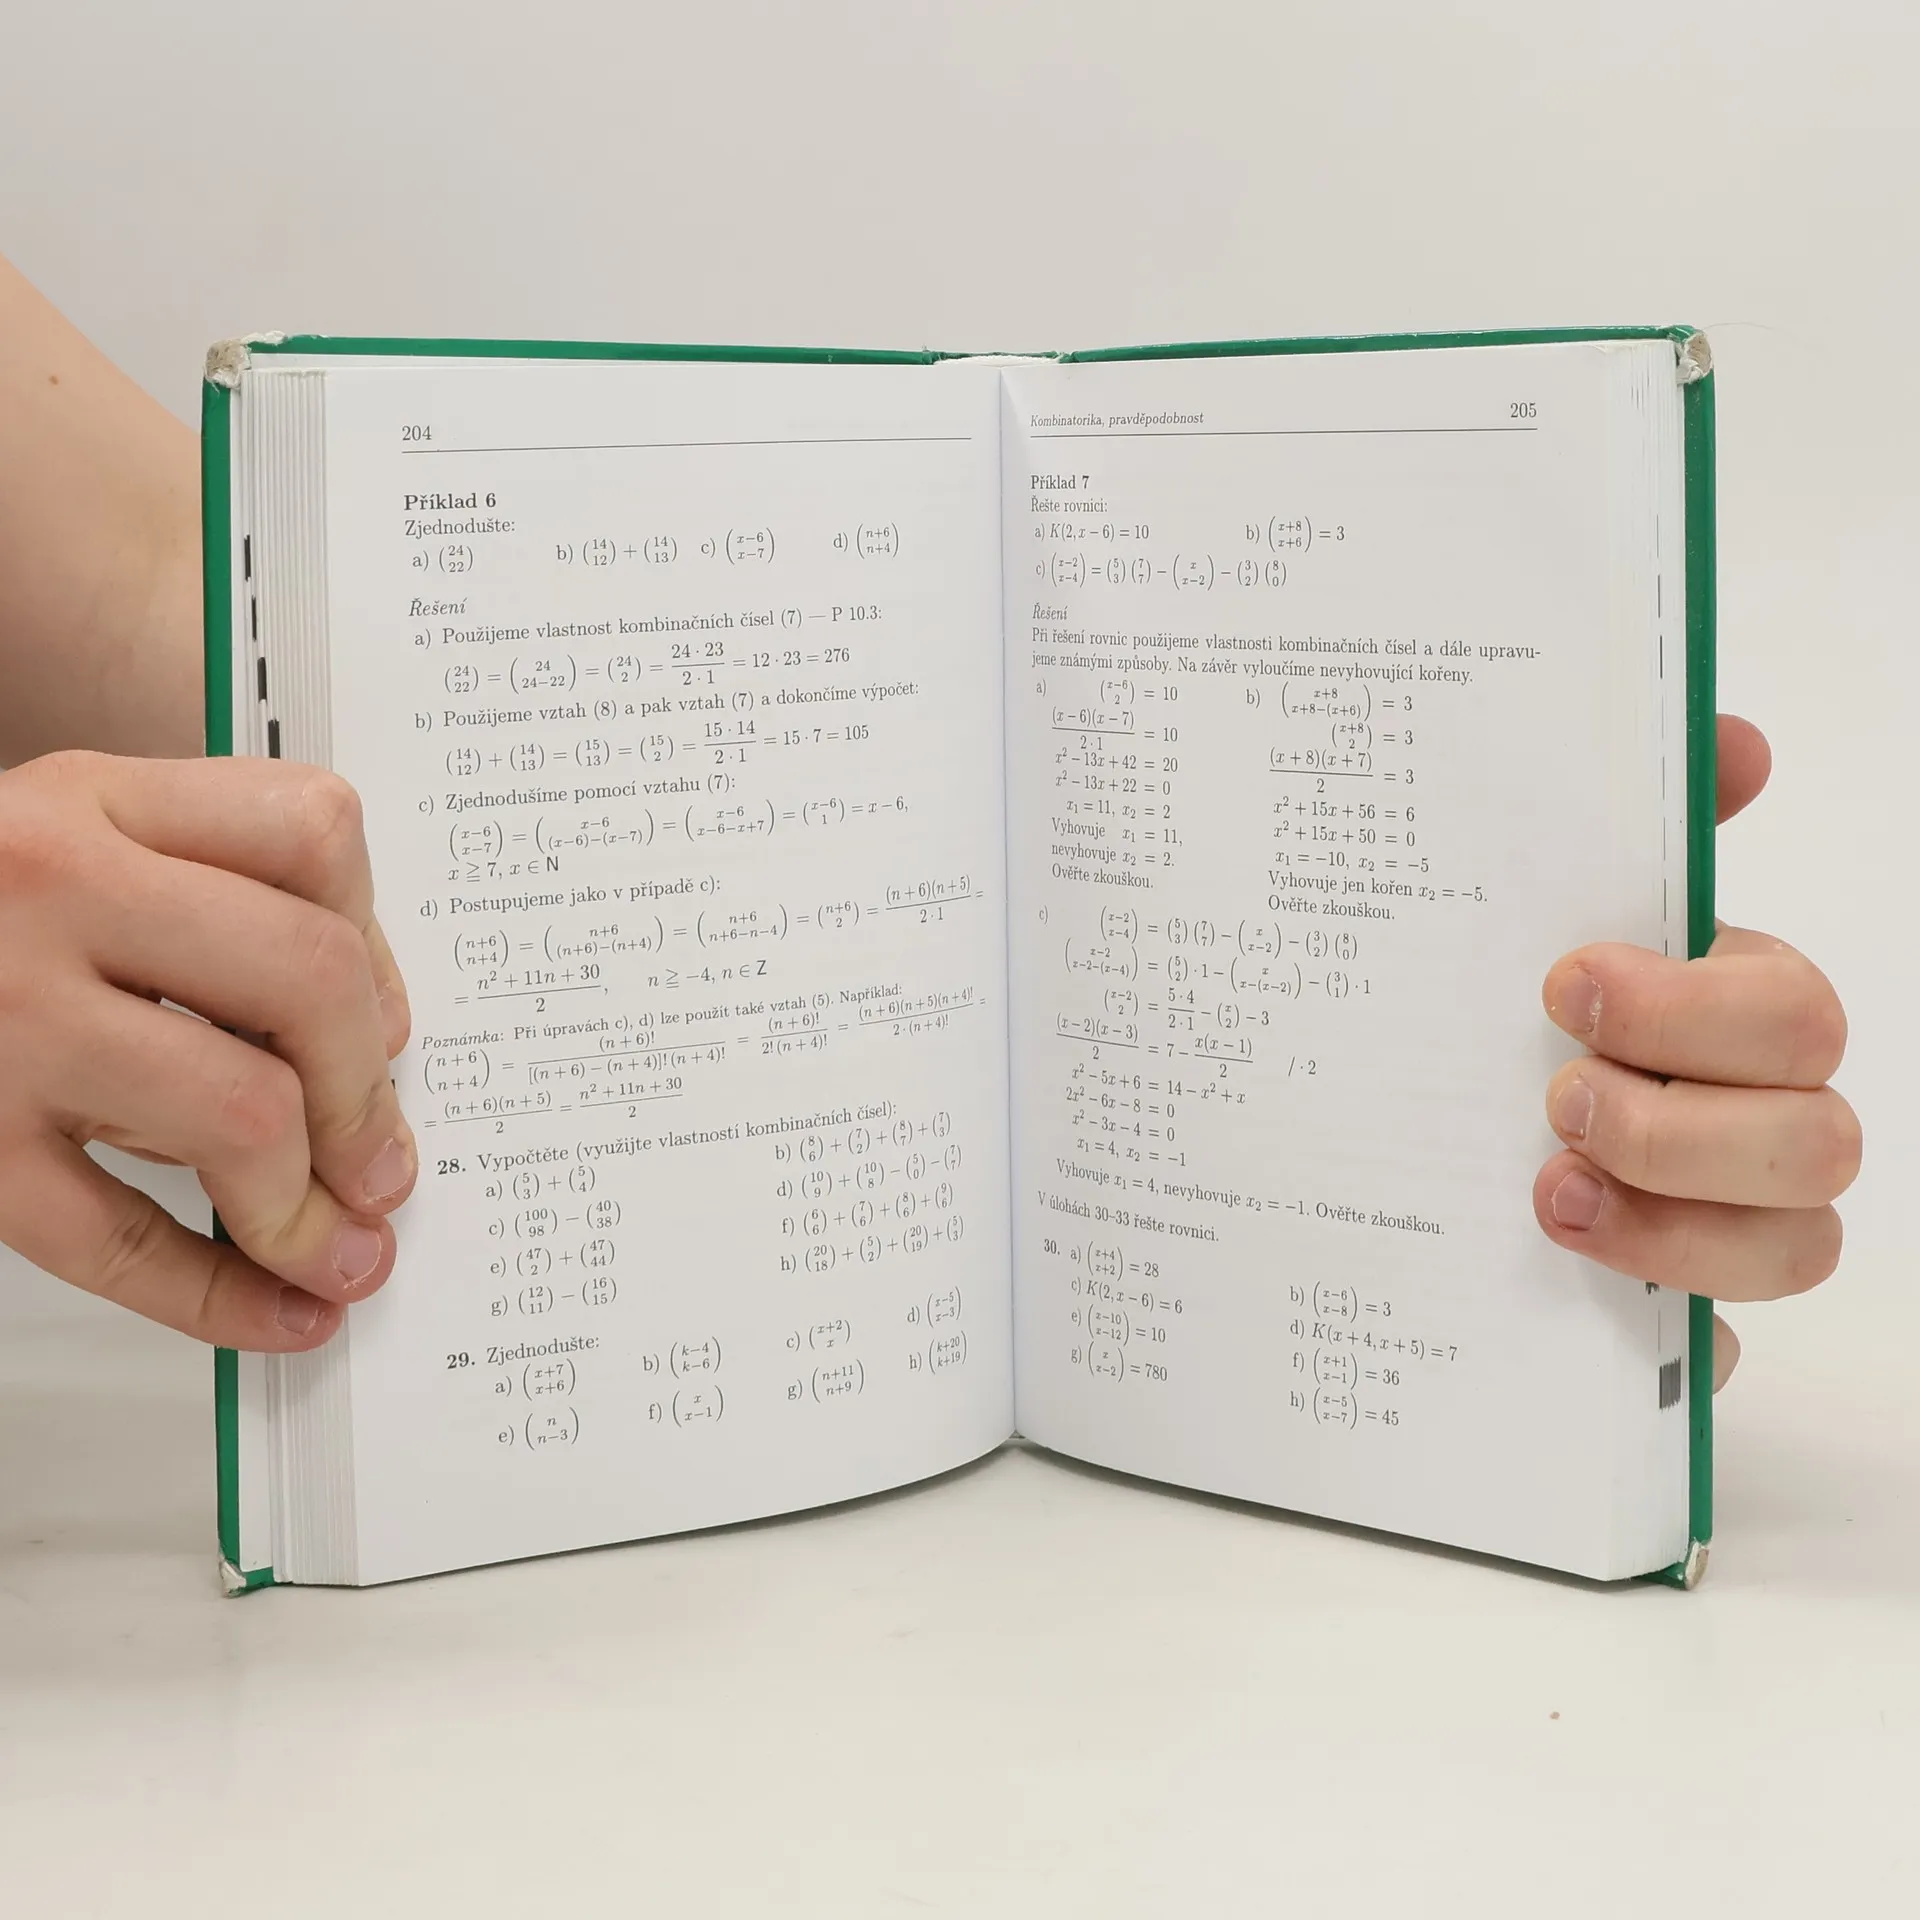 204
Příklad 6
Zjednodušte:
a) \binom{24}{22} b) \binom{14}{12} + \binom{14}{13} c) \binom{x-6}{x-7} d) \binom{n+6}{n+4}
Řešení
a) Použijeme vlastnost kombinačních čísel (7) — P 10.3:
\binom{24}{22} = \binom{24}{24-22} = \binom{24}{2} = \frac{24 · 23}{2 · 1} = 12 · 23 = 276
b) Použijeme vztah (8) a pak vztah (7) a dokončíme výpočet:
\binom{14}{12} + \binom{14}{13} = \binom{15}{13} = \binom{15}{2} = \frac{15 · 14}{2 · 1} = 15 · 7 = 105
c) Zjednodušíme pomocí vztahu (7):
\binom{x-6}{x-7} = \binom{x-6}{(x-6)-(x-7)} = \binom{x-6}{x-6-x+7} = \binom{x-6}{1} = x - 6,
x ≧ 7, x ∈ N
d) Postupujeme jako v případě c):
\binom{n+6}{n+4} = \binom{n+6}{(n+6)-(n+4)} = \binom{n+6}{n+6-n-4} = \binom{n+6}{2} = \frac{(n+6)(n+5)}{2 · 1} =
= \frac{n^2 + 11n + 30}{2}, n ≧ -4, n ∈ Z
Poznámka: Při úpravách c), d) lze použít také vztah (5). Například:
\binom{n+6}{n+4} = \frac{(n+6)!}{[(n+6) - (n+4)]! (n+4)!} = \frac{(n+6)!}{2! (n+4)!} = \frac{(n+6)(n+5)(n+4)!}{2 · (n+4)!} =
= \frac{(n+6)(n+5)}{2} = \frac{n^2 + 11n + 30}{2}
28. Vypočtěte (využijte vlastností kombinačních čísel):
a) \binom{5}{3} + \binom{5}{4} b) \binom{8}{6} + \binom{7}{2} + \binom{8}{7} + \binom{7}{3}
c) \binom{100}{98} - \binom{40}{38} d) \binom{10}{9} + \binom{10}{8} - \binom{5}{0} - \binom{7}{7}
e) \binom{47}{2} + \binom{47}{44} f) \binom{6}{6} + \binom{7}{6} + \binom{8}{6} + \binom{9}{6}
g) \binom{12}{11} - \binom{16}{15} h) \binom{20}{18} + \binom{5}{2} + \binom{20}{19} + \binom{5}{3}
29. Zjednodušte:
a) \binom{x+7}{x+6} b) \binom{k-4}{k-6} c) \binom{x+2}{x} d) \binom{x-5}{x-3}
e) \binom{n}{n-3} f) \binom{x}{x-1} g) \binom{n+11}{n+9} h) \binom{k+20}{k+19}
Kombinatorika, pravděpodobnost 205
Příklad 7
Řešte rovnici:
a) K(2, x - 6) = 10 b) \binom{x+8}{x+6} = 3
c) \binom{x-2}{x-4} = \binom{5}{3} \binom{7}{7} - \binom{x}{x-2} - \binom{3}{2} \binom{8}{0}
Řešení
Při řešení rovnic použijeme vlastnosti kombinačních čísel a dále upravu-
jeme známými způsoby. Na závěr vyloučíme nevyhovující kořeny.
a) \binom{x-6}{2} = 10
\frac{(x-6)(x-7)}{2·1} = 10
x^2 - 13x + 42 = 20
x^2 - 13x + 22 = 0
x_1 = 11, x_2 = 2
Vyhovuje x_1 = 11,
nevyhovuje x_2 = 2.
Ověřte zkouškou.
b) \binom{x+8}{x+8-(x+6)} = 3
\binom{x+8}{2} = 3
\frac{(x+8)(x+7)}{2} = 3
x^2 + 15x + 56 = 6
x^2 + 15x + 50 = 0
x_1 = -10, x_2 = -5
Vyhovuje jen kořen x_2 = -5.
Ověřte zkouškou.
c) \binom{x-2}{x-4} = \binom{5}{3} \binom{7}{7} - \binom{x}{x-2} - \binom{3}{2} \binom{8}{0}
\binom{x-2}{x-2-(x-4)} = \binom{5}{2} · 1 - \binom{x}{x-(x-2)} - \binom{3}{1} · 1
\binom{x-2}{2} = \frac{5·4}{2·1} - \binom{x}{2} - 3
\frac{(x-2)(x-3)}{2} = 7 - \frac{x(x-1)}{2} / · 2
x^2 - 5x + 6 = 14 - x^2 + x
2x^2 - 6x - 8 = 0
x^2 - 3x - 4 = 0
x_1 = 4, x_2 = -1
Vyhovuje x_1 = 4, nevyhovuje x_2 = -1. Ověřte zkouškou.
V úlohách 30–33 řešte rovnici.
30. a) \binom{x+4}{x+2} = 28 b) \binom{x-6}{x-8} = 3
c) K(2, x - 6) = 6 d) K(x + 4, x + 5) = 7
e) \binom{x-10}{x-12} = 10 f) \binom{x+1}{x-1} = 36
g) \binom{x}{x-2} = 780 h) \binom{x-5}{x-7} = 45